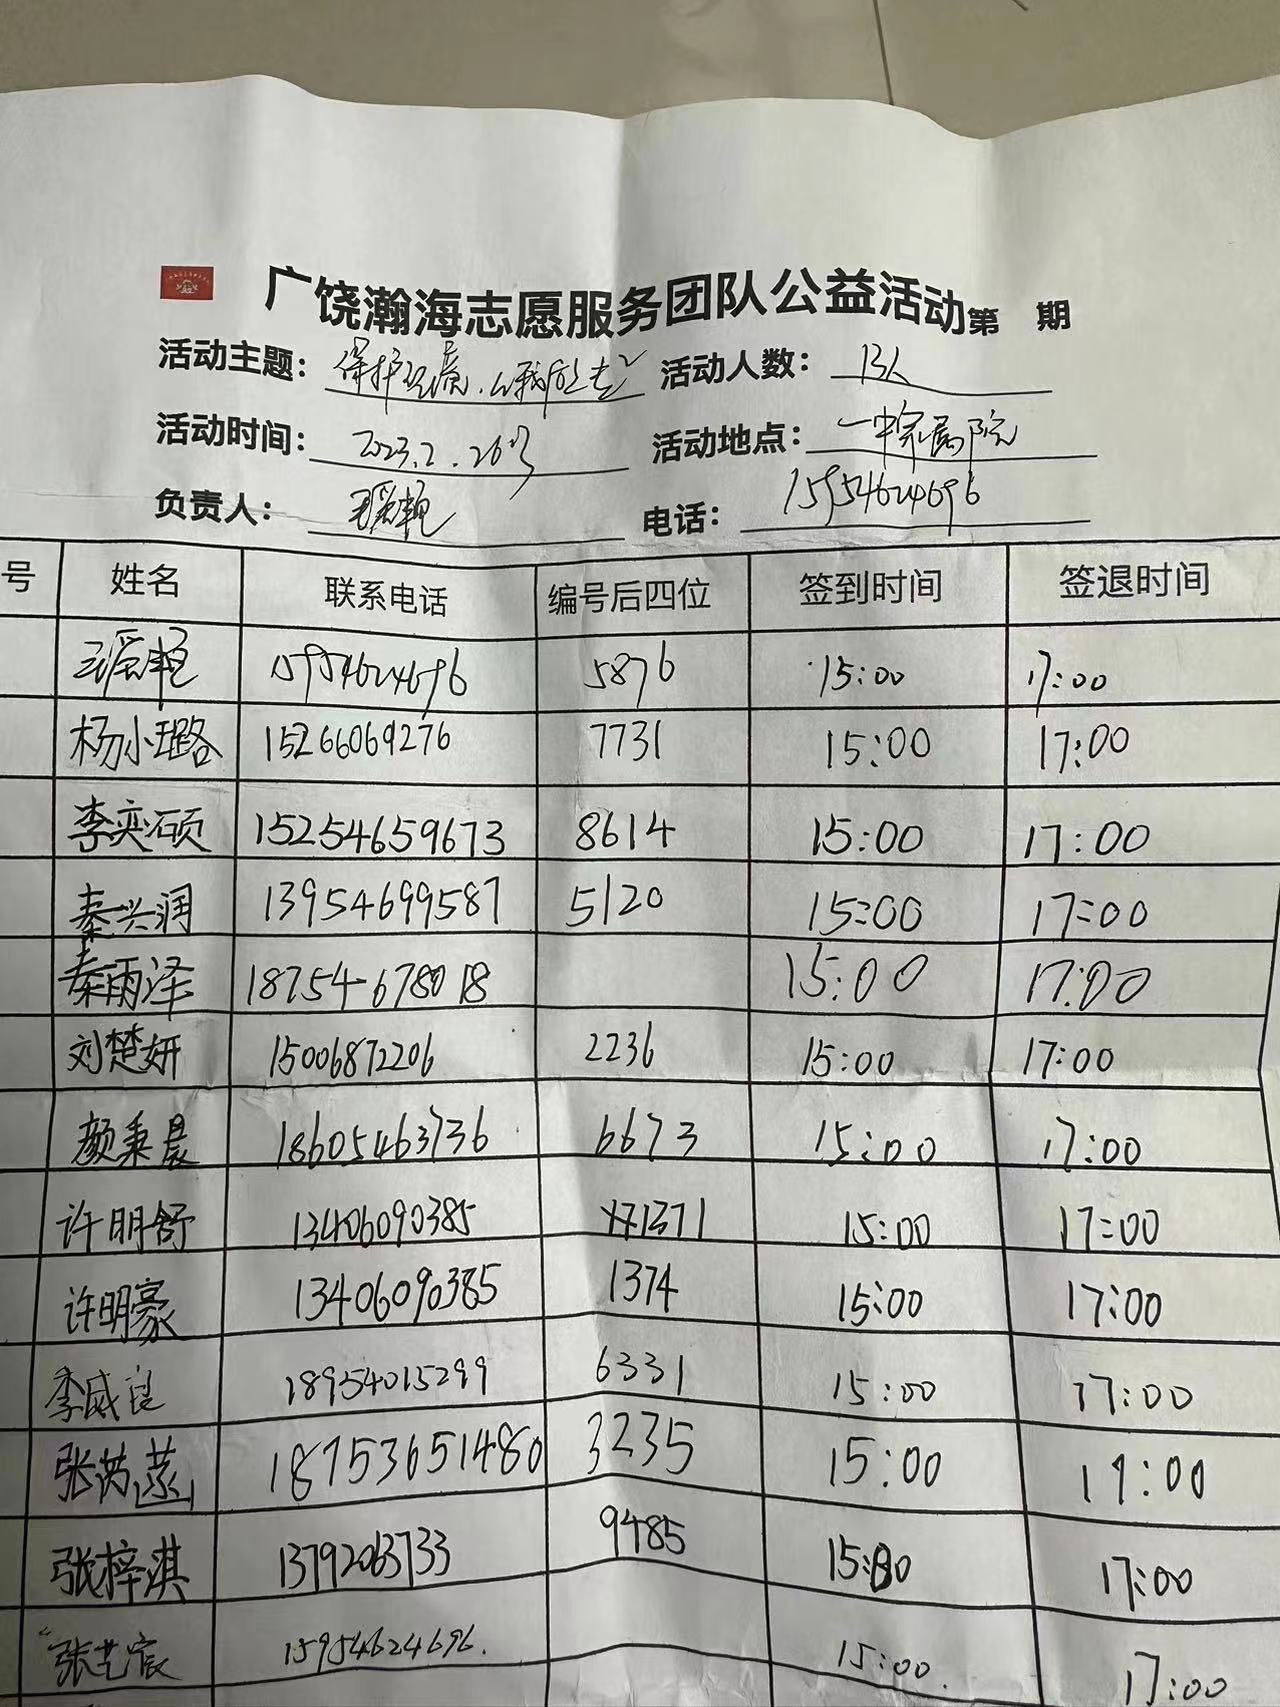 广饶瀚海志愿服务团队公益活动第 期
活动主题：保护环境，从我做起 活动人数：13人
活动时间：2023.2.26号 活动地点：一中家属院
负责人： 电话：15954624696
号 姓名 联系电话 编号后四位 签到时间 签退时间
15954624696 5876 15:00 17:00
杨小璐 15266069276 7731 15:00 17:00
李奕硕 15254659673 8614 15:00 17:00
秦兴润 13954699587 5120 15:00 17:00
秦雨泽 18754678018 15:00 17:00
刘楚妍 15006872206 2236 15:00 17:00
颜秉晨 18605463736 6673 15:00 17:00
许明舒 13406090385 1371 15:00 17:00
许明豪 13406090385 1374 15:00 17:00
李威良 18954015299 6331 15:00 17:00
张芮菡 18753651480 3235 15:00 17:00
张梓淇 13792063733 9485 15:00 17:00
张艺宸 15954624696. 15:00. 17:00